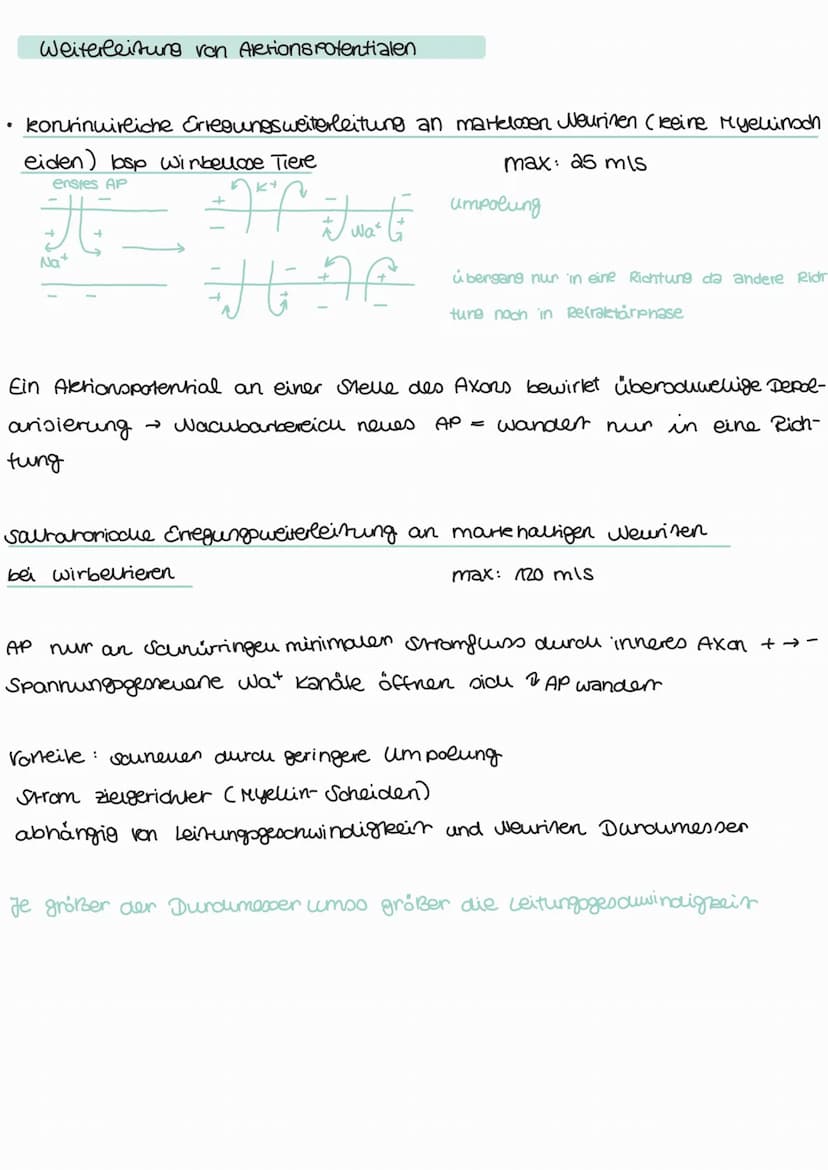 Weiterleitung von Aktionspotentialen
• kontinuirliche Erregungsweiterleitung an marklosen Neuriten (keine Myelinsch
eiden) bsp wirbellose Tiere max: 25 m/s
erstes AP K+
- - + - - Umpolung
+ + - + + Na+
Na+
- - - + + übergang nur in eine Richtung da andere Rich
- - + + - - tung noch in Refraktärphase
Ein Aktionspotential an einer Stelle des Axons bewirkt überschwellige Depol-
arisierung → Nachbarbereich neues AP = wandert nur in eine Rich-
tung
saltatorische Erregungsweiterleitung an markhaltigen Neuriten
bei wirbeltieren max: 120 m/s
AP nur an Schnürringen minimalen Stromfluss durch inneres Axon + → -
Spannungsgesteuerte Na+ Kanäle öffnen sich ↯ AP wandert
Vorteile: schneller durch geringere Umpolung
Strom zielgerichtet (Myelin-Scheiden)
abhängig von Leitungsgeschwindigkeit und Neuriten Durchmesser
Je größer der Durchmesser umso größer die Leitungsgeschwindigkeit